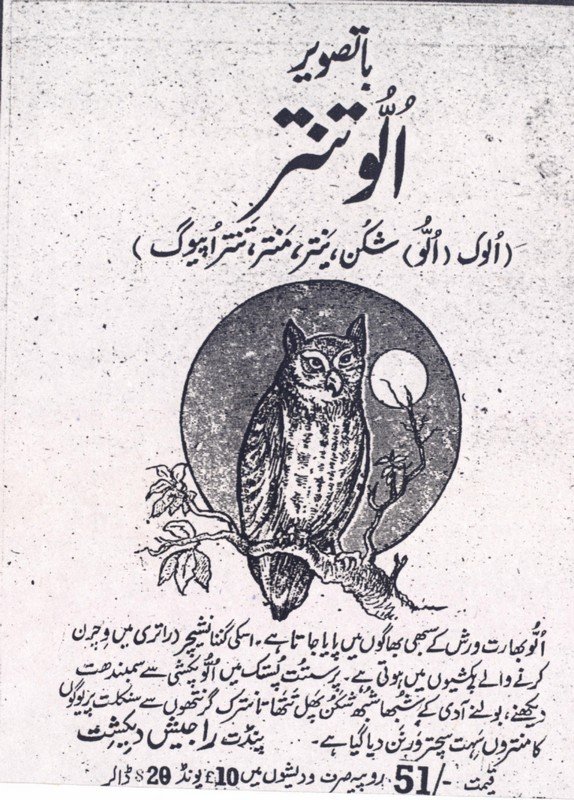 باتصویر
اُلّو تنتر
(اُلوک (اُلّو) شکُن، یَنتر، مَنتر، تَنتر اُپیوگ)
اُلّو بھارت ورش کے سبھی بھاگوں میں پایا جاتا ہے۔ اسکی گننا نشیچر (راتری میں وِچرن
کرنے والے) پکشیوں میں ہوتی ہے۔ پرستُت پُستک میں اُلّو پکشی سے سمبندھت
دیکھنے، بولنے آدی کے شُبھا شُبھ شکن پھل تتھا تانترک گرنتھوں سے سنکلت پریوگوں
کا منتروں سہت سچتر ورنن دیا گیا ہے۔ پنڈت راجیش دیکشِت
قیمت 51/- روپیہ صرف ودیشوں میں £10 پونڈ 20$ ڈالر